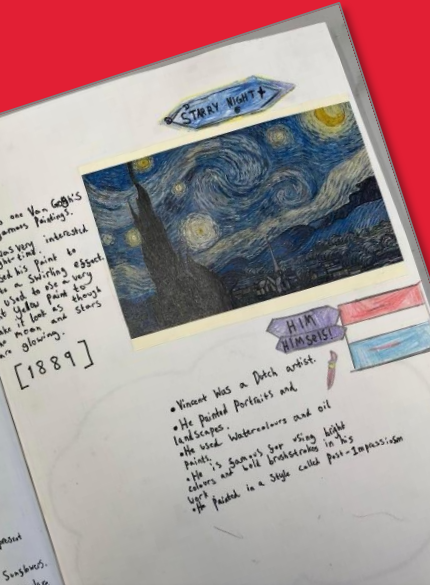 STARRY NIGHT
one Van Gogh's
Paintings.
was very interested
night time.
used his paint to
a swirling effect.
used to use a very
Yellow Paint to
it look as though
moon and stars
are glowing.
[1889]
HIM
HIMSELF!
• Vincent was a Dutch artist.
• He Painted Portraits and
landscapes.
• He used Watercolours and oil
paints.
• He is famous for using bright
colours and bold brushstrokes in his
work
• He painted in a style called Post-Impressiosm